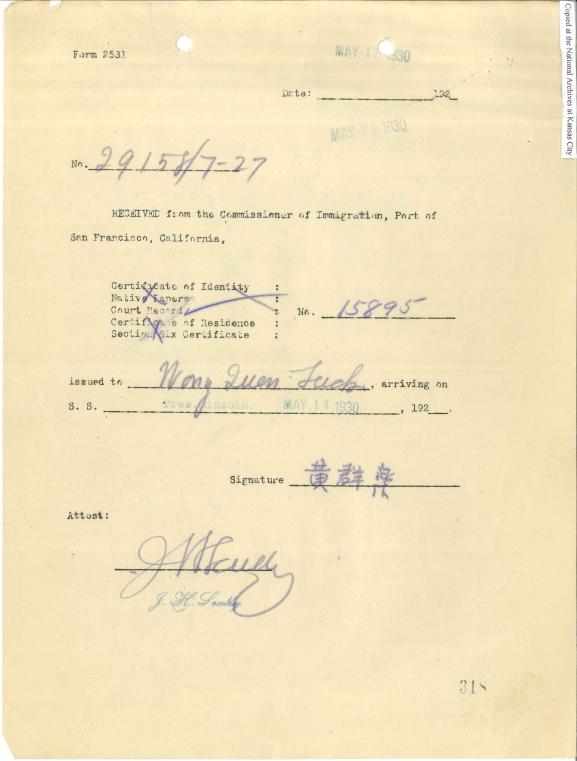 Copied at the National Archives at Kansas City
Form 2531
MAY 17 1930
Date: 192
MAY 21 1930
No. 29158/7-27
RECEIVED from the Commissioner of Immigration, Port of
San Francisco, California,
Certificate of Identity :
Native Papers :
Court Record : No. 15895
Certificate of Residence :
Section Six Certificate :
Issued to Wong Quen Luck, arriving on
S. S. Pres. Lincoln. MAY 14 1930, 192 .
Signature 黄群樂
Attest:
J. H.
318